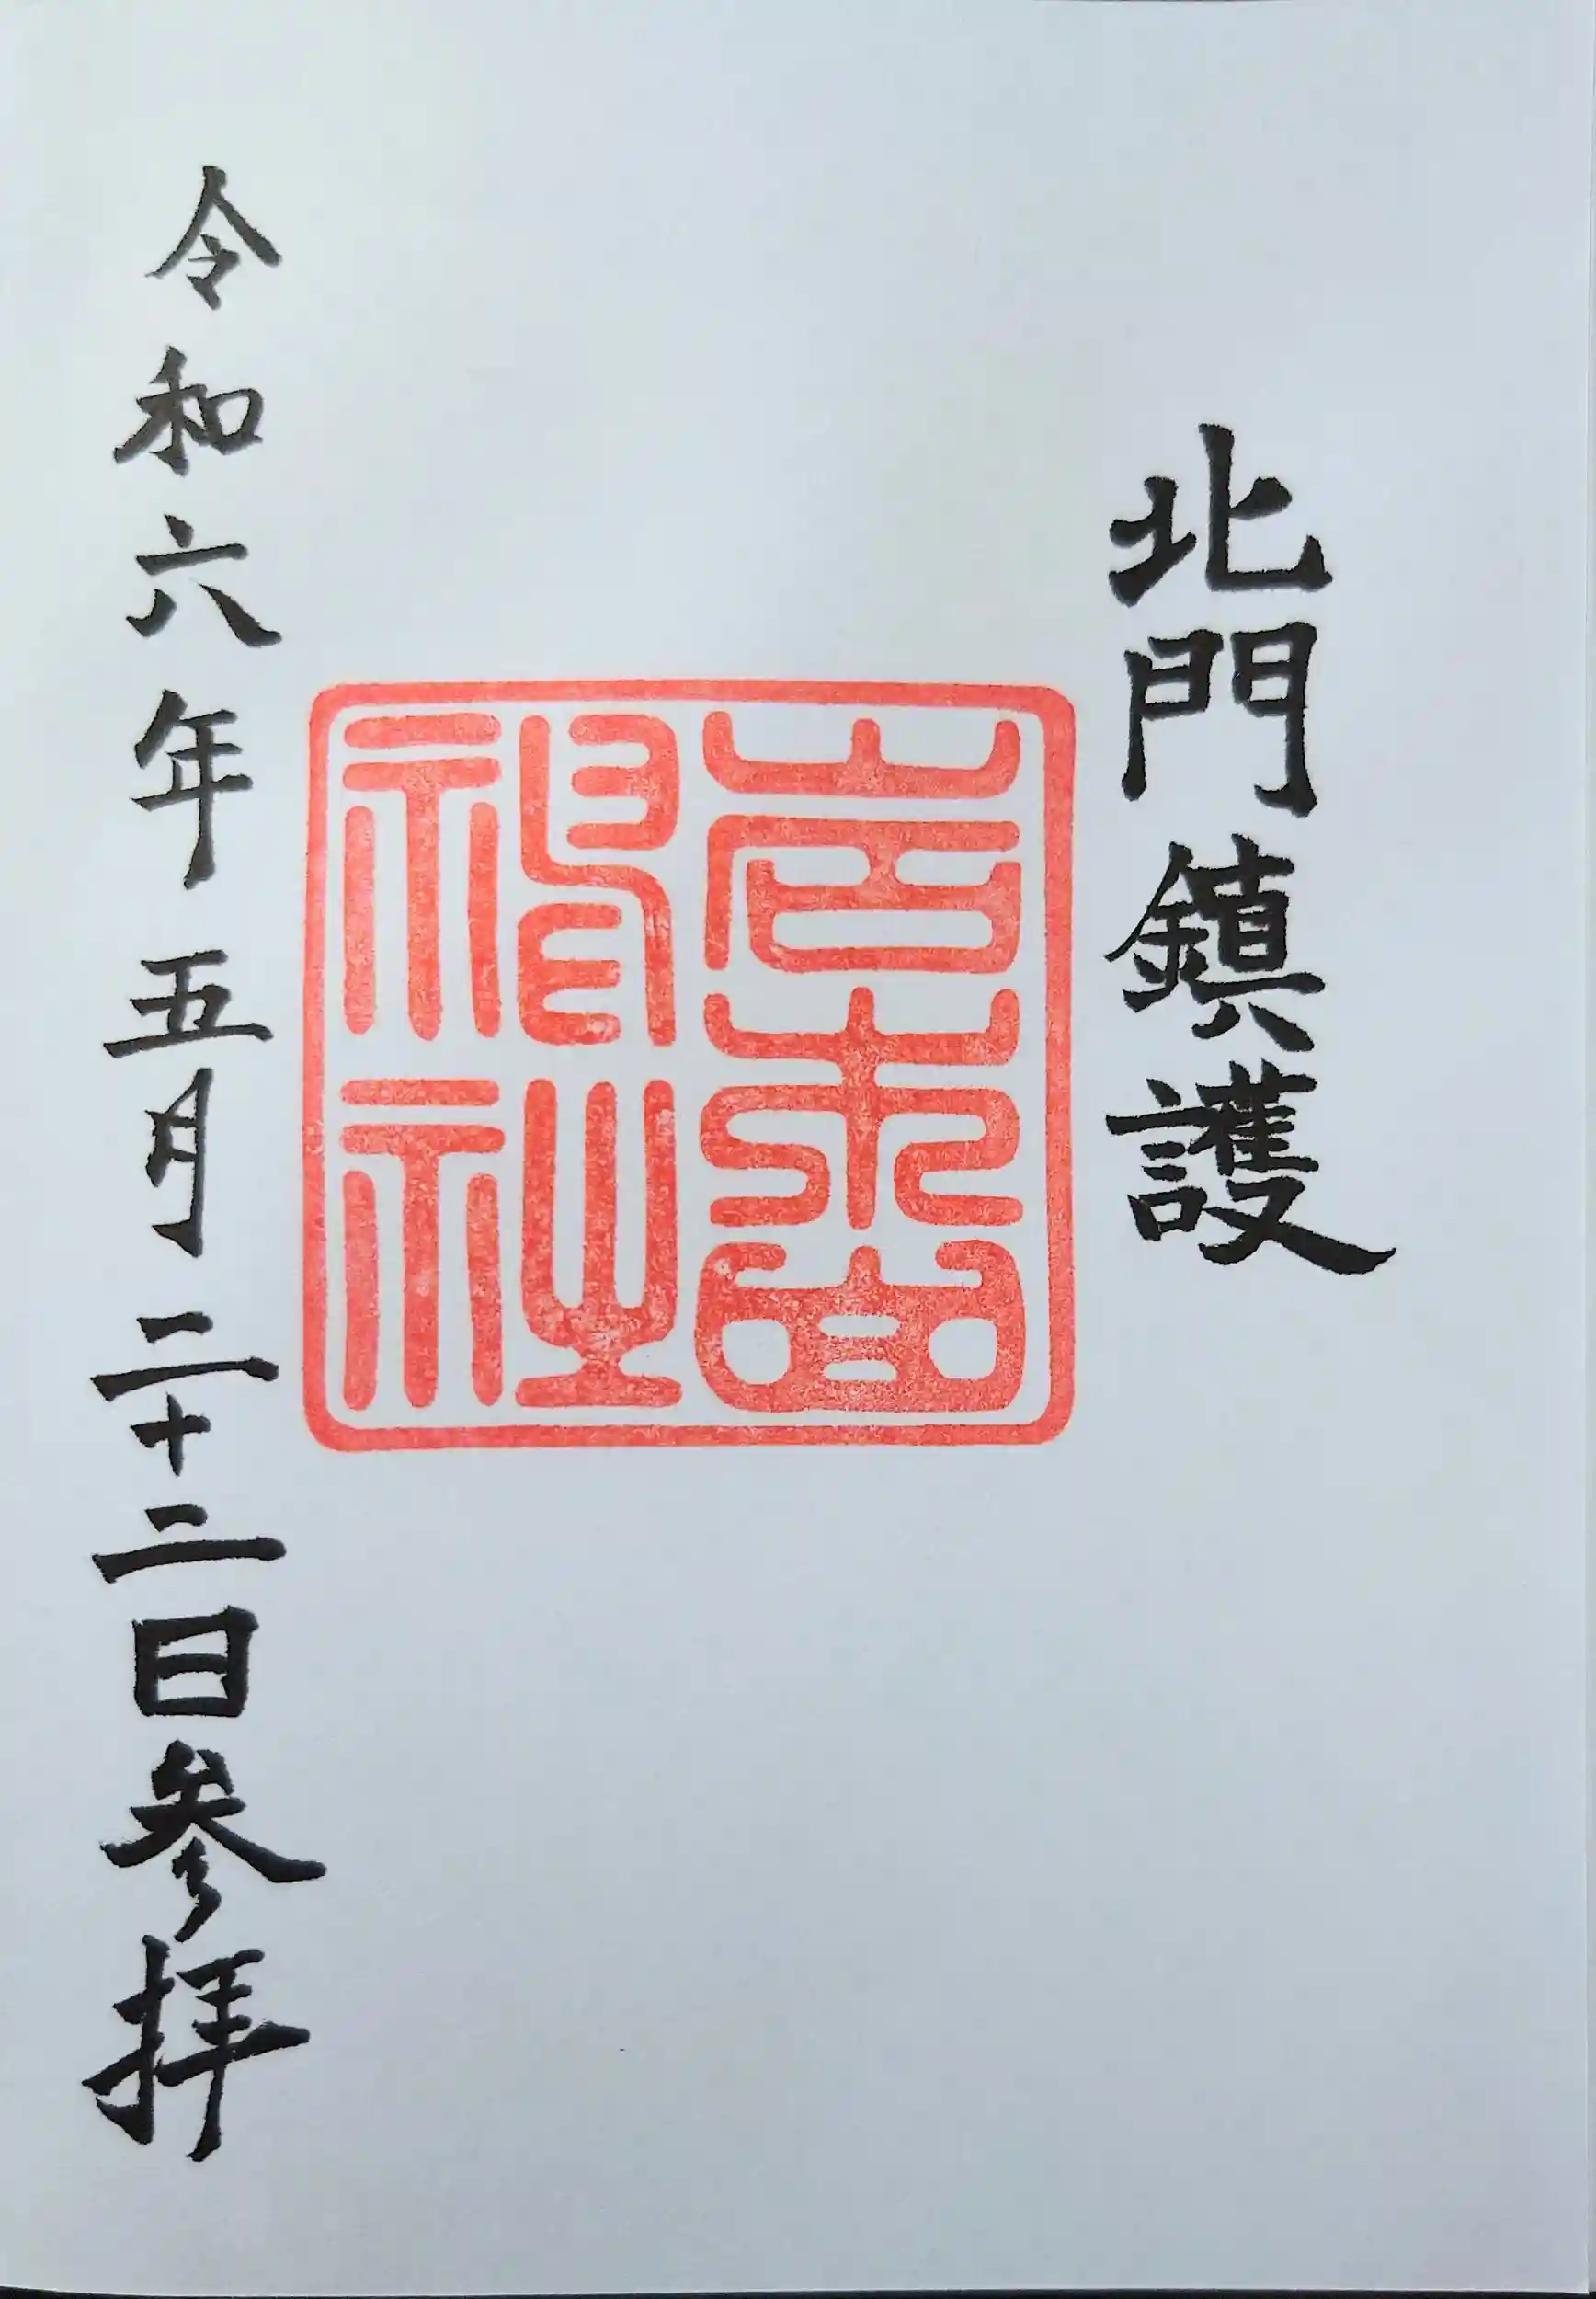 北門鎮護
岩木山
神社
令和六年五月二十二日参拝